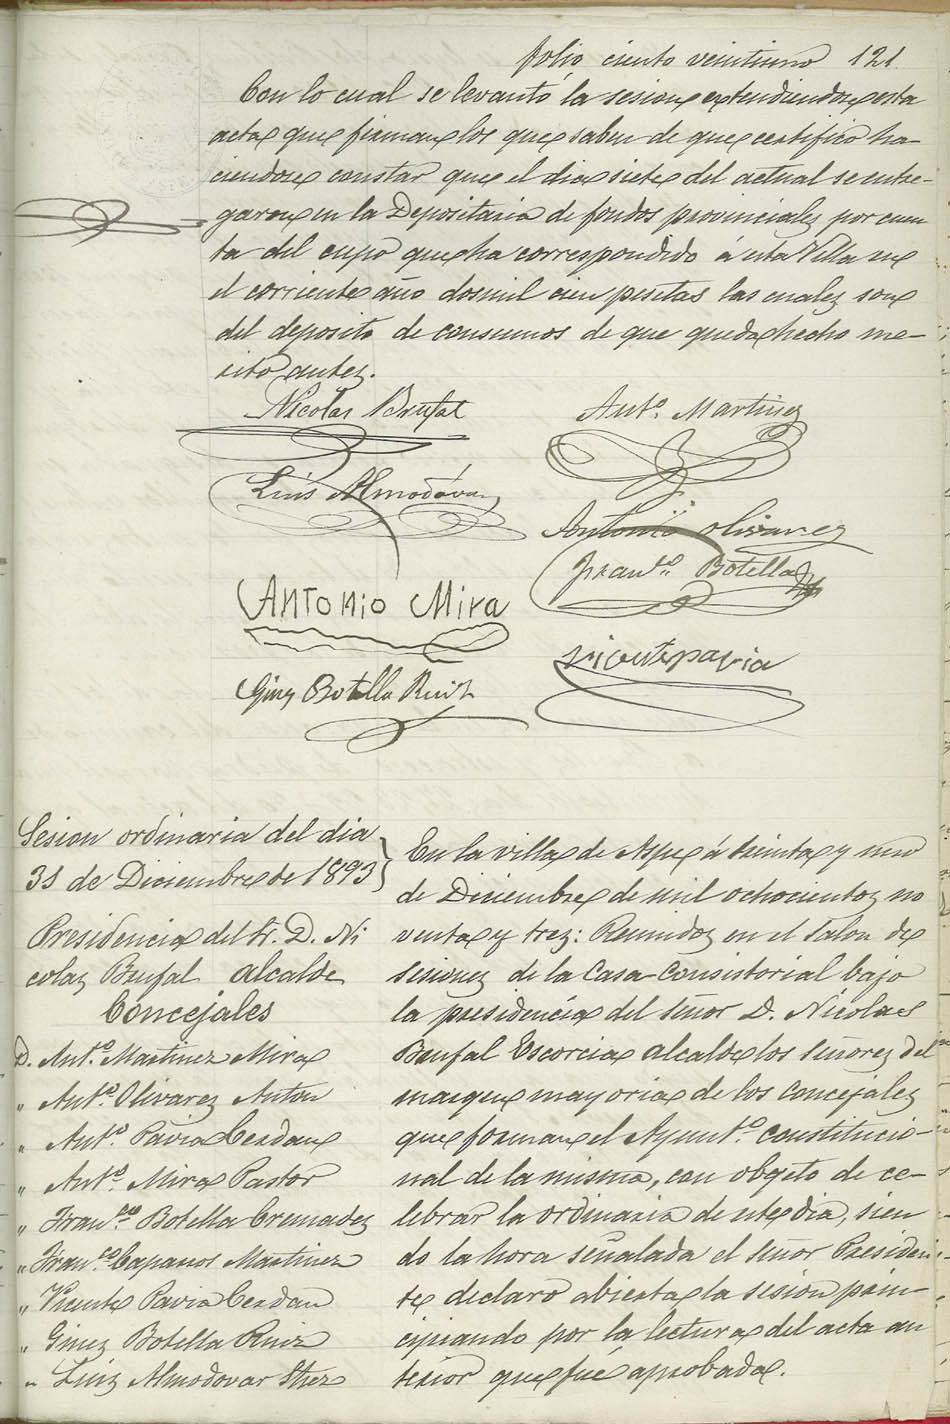 folio ciento veintiuno 121
Con lo cual se levantó la sesion extendiendose esta
acta que firman los que saben de que certifico ha-
ciendose constar que el dia siete del actual se entre-
garon en la Depositaria de fondos provinciales por cuen
ta del cupo que ha correspondido á esta Villa en
el corriente año dosmil cien pesetas las cuales son
del deposito de consumos de que queda hecho me-
rito antes.
Nicolas Brufal
Antº. Martinez
Luis Almodóvar
Antonio Olivarez
Franco. Botella
Antonio Mira
vicente pavia
Ginez Botella Ruiz
Sesion ordinaria del dia
31 de Diciembre de 1893
Presidencia del Sr. D. Ni
colas Brufal alcalde
Concejales
D. Antº. Martinez Mira
" Antº. Olivarez Anton
" Antº. Pavia Cerdan
" Antº. Mira Pastor
" Franco Botella Cremadez
" Franco. Caparros Martinez
" Vicente Pavia Cerdan
" Ginez Botella Ruiz
" Luiz Almodovar Shez
En la villa de Aspe á treinta y uno
de Diciembre de mil ochocientoz no
venta y trez: Reunidoz en el Salon de
sesionez de la Casa-Consistorial bajo
la presidencia del Señor D. Nicolas
Brufal Escorcia alcalde los Señorez del
margen mayoria de los concejalez
que forman el Ayuntº. constitucio-
nal de la misma, con obgeto de ce-
lebrar la ordinaria de este dia, sien
do la hora señalada el Señor Presiden-
te declaro abierta la sesion prin-
cipiando por la lectura del acta an
terior que fué aprobada.